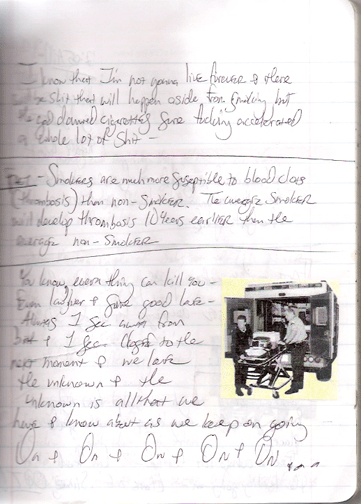 I know that I'm not gonna live forever & there
will be shit that will happen aside from smoking but
the god damned cigarettes sure fucking accelerated
a whole lot of shit -
Fact - Smokers are much more suseptible to blood clots
(thrombosis) then non-smoker. The average smoker
will develop thrombosis 10 years earlier then the
average non-smoker
You know, everything can kill you -
Even laughter & good
Always I see from
that & I see closer to the
next moment & we have
the unknown & the
unknown is all that we
have & know about as we keep on going
On & On & On & On & On